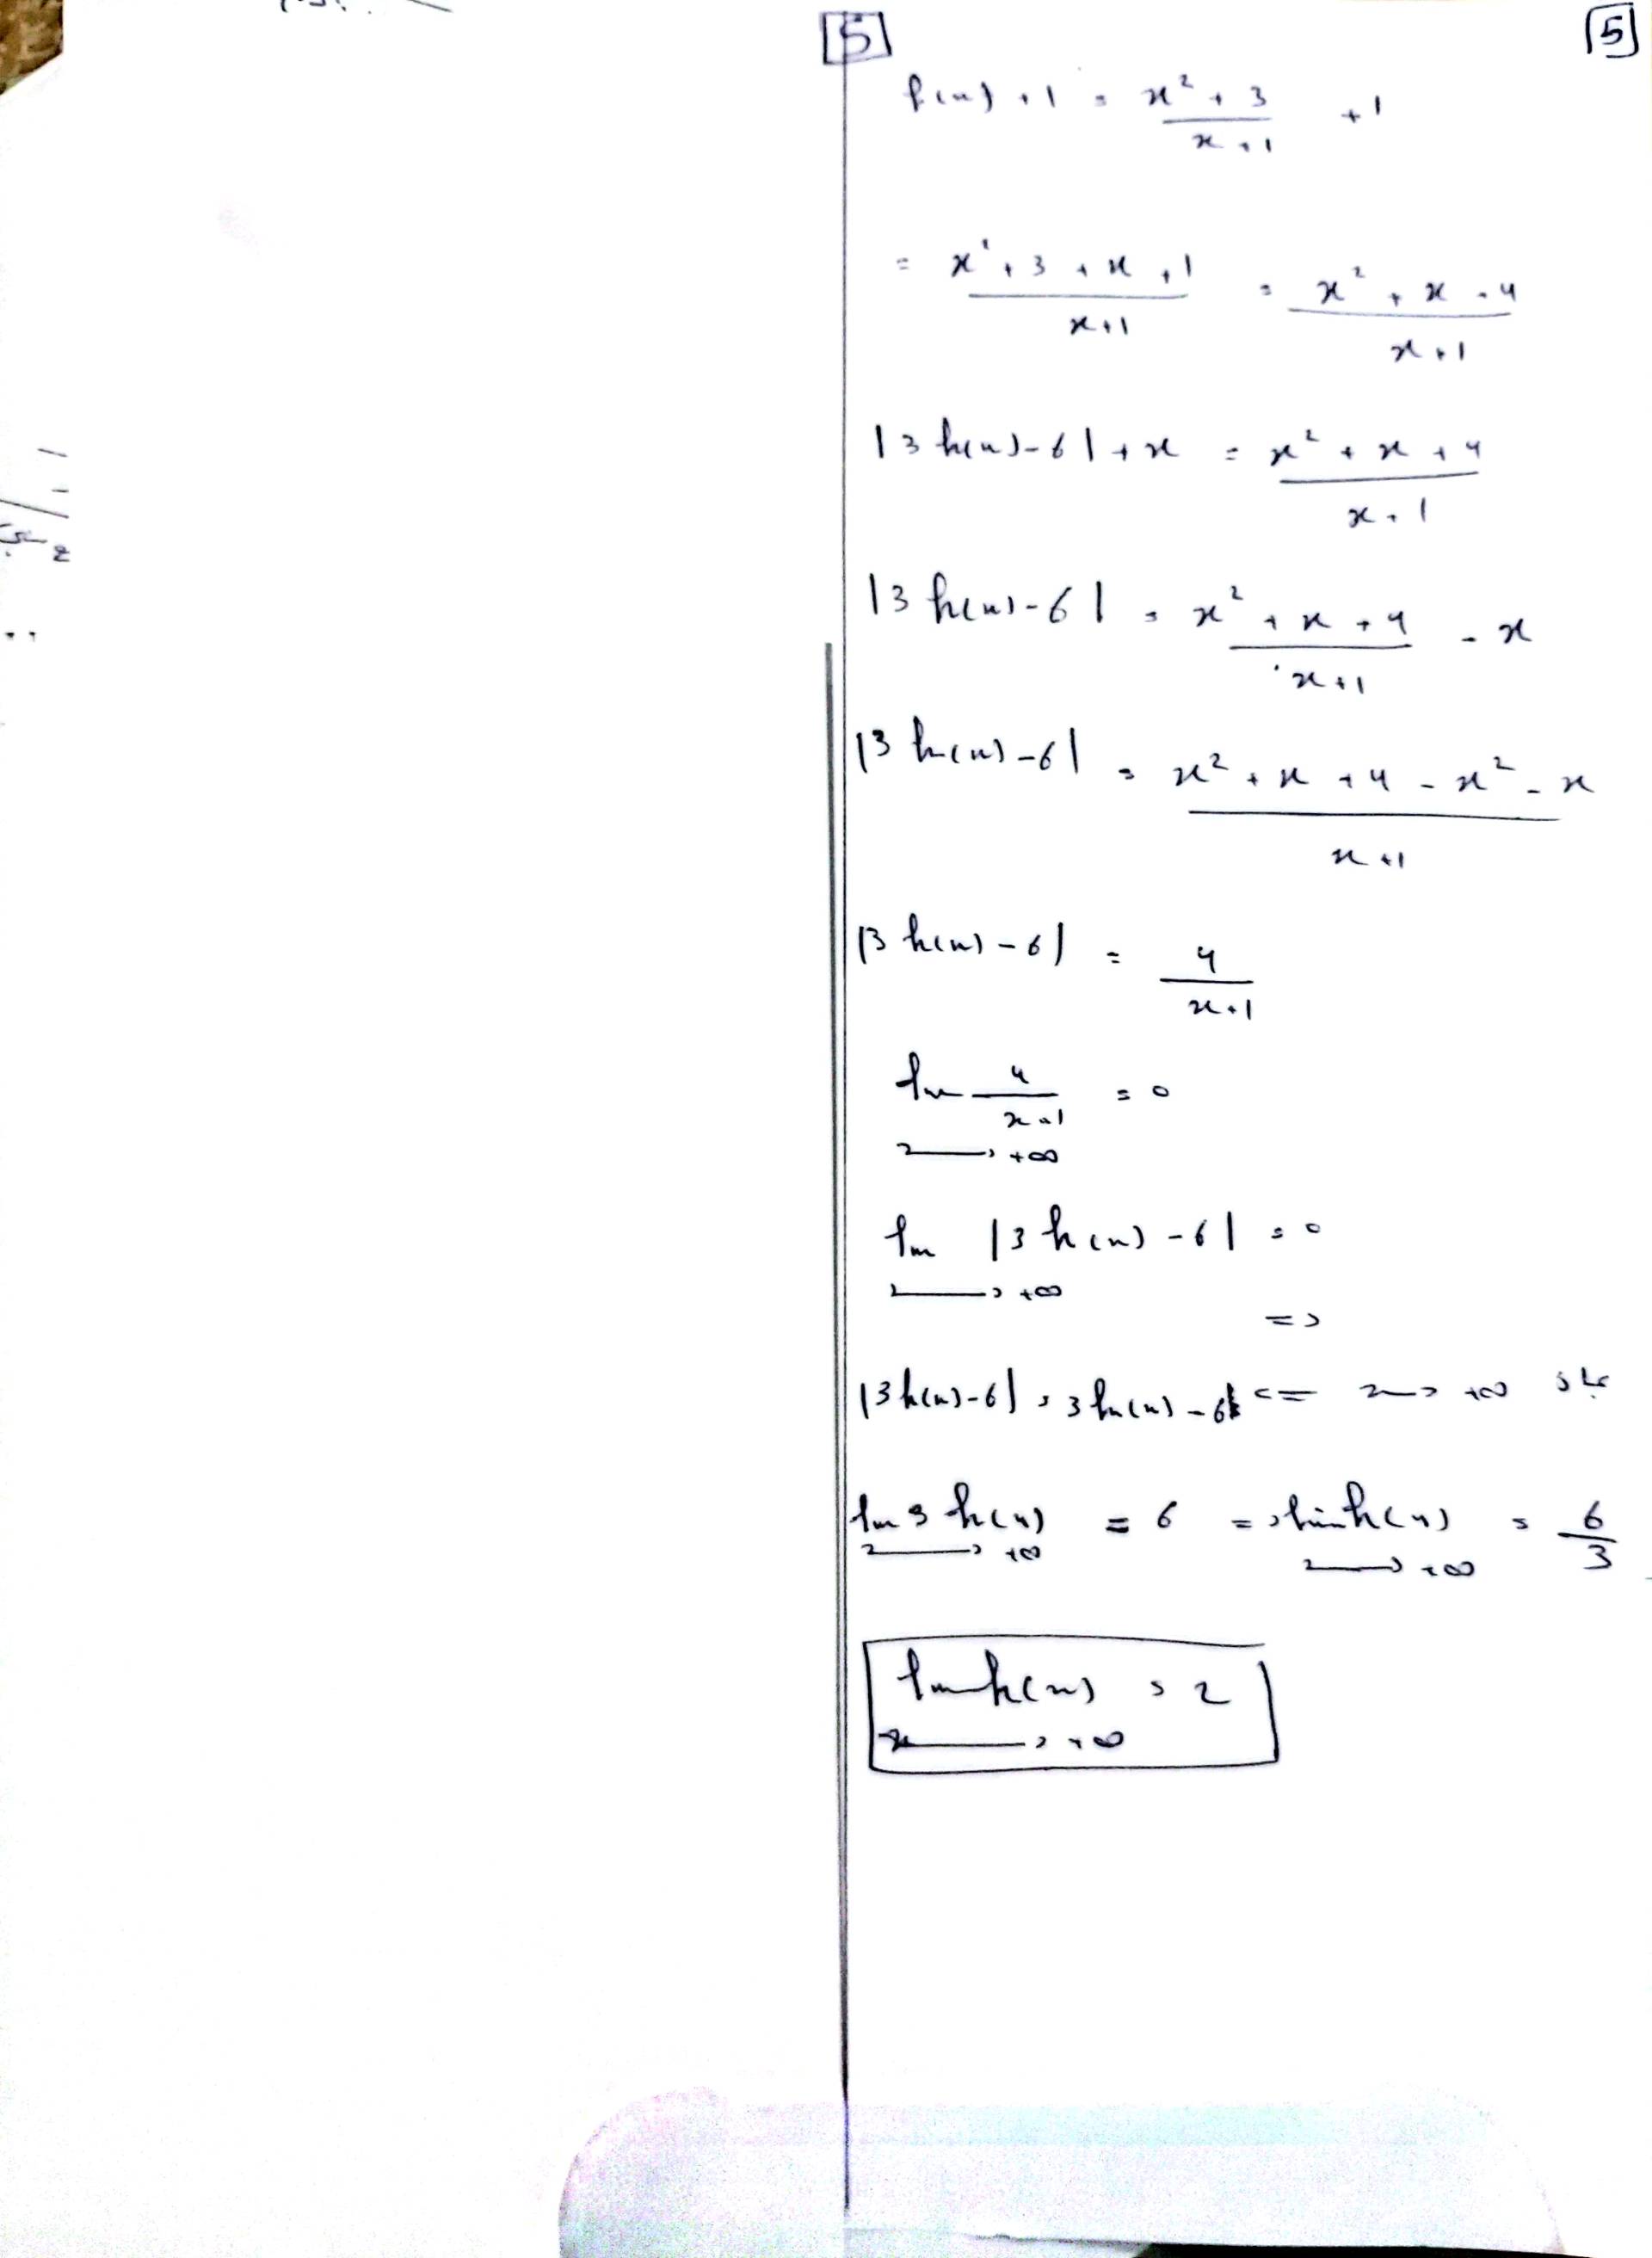 5
5
f(x) + 1 = (x² + 3)/(x + 1) + 1
= (x² + 3 + x + 1)/(x + 1) = (x² + x + 4)/(x + 1)
|3 h(x) - 6| + x = (x² + x + 4)/(x + 1)
|3 h(x) - 6| = (x² + x + 4)/(x + 1) - x
|3 h(x) - 6| = (x² + x + 4 - x² - x)/(x + 1)
|3 h(x) - 6| = 4/(x + 1)
lim 4/(x + 1) = 0
x → +∞
lim |3 h(x) - 6| = 0
x → +∞
=>
|3 h(x) - 6| = 3 h(x) - 6 <= x → +∞
lim 3 h(x) = 6 => lim h(x) = 6/3
x → +∞ x → +∞
lim h(x) = 2
x → +∞